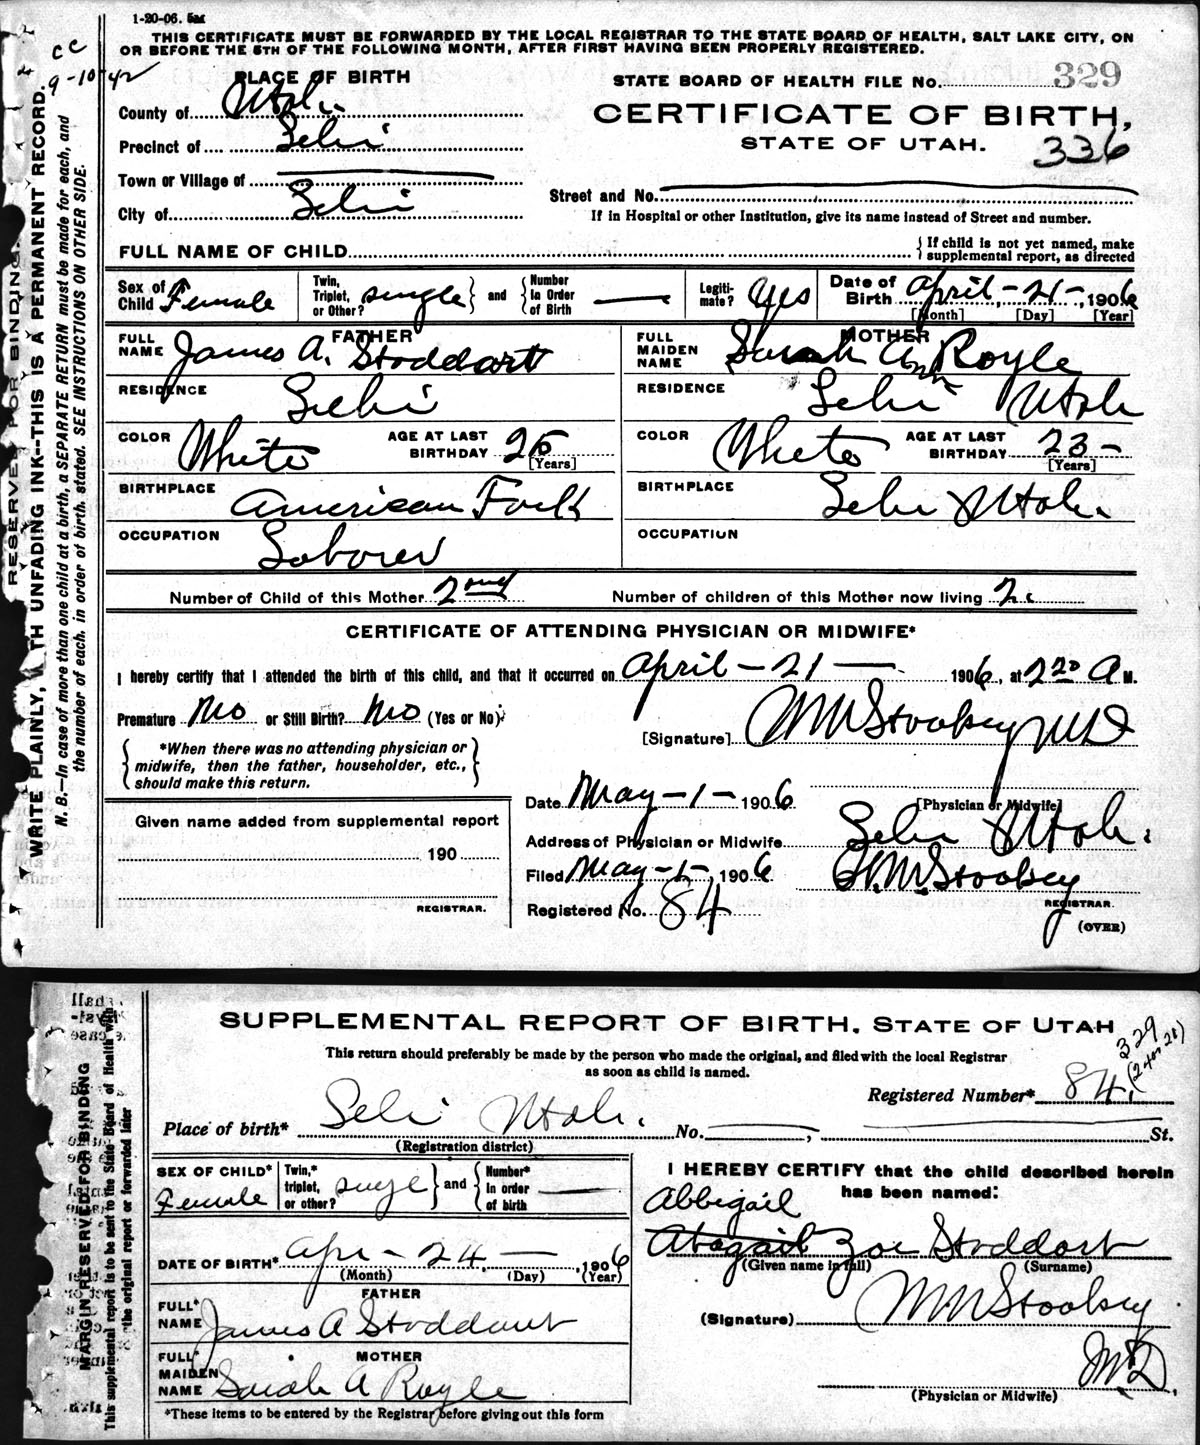 1-20-06. 5m
THIS CERTIFICATE MUST BE FORWARDED BY THE LOCAL REGISTRAR TO THE STATE BOARD OF HEALTH, SALT LAKE CITY, ON
OR BEFORE THE 5TH OF THE FOLLOWING MONTH, AFTER FIRST HAVING BEEN PROPERLY REGISTERED.
CC
9-10-42
PLACE OF BIRTH
STATE BOARD OF HEALTH FILE No. 329
County of Utah
CERTIFICATE OF BIRTH,
Precinct of Lehi
STATE OF UTAH. 336
Town or Village of
Street and No.
City of Lehi
If in Hospital or other Institution, give its name instead of Street and number.
FULL NAME OF CHILD { If child is not yet named, make supplemental report, as directed
Sex of Child Female Twin, Triplet, or Other? single } and { Number in Order of Birth — Legitimate? Yes Date of Birth April - 21 -, 1906
[Month] [Day] [Year]
FATHER MOTHER
FULL NAME James A. Stoddart FULL MAIDEN NAME Sarah Ann Royle
RESIDENCE Lehi RESIDENCE Lehi Utah
COLOR White AGE AT LAST BIRTHDAY 25 [Years] COLOR White AGE AT LAST BIRTHDAY 23 - [Years]
BIRTHPLACE American Fork BIRTHPLACE Lehi Utah.
OCCUPATION Laborer OCCUPATION
Number of Child of this Mother 2ond Number of children of this Mother now living 2.
CERTIFICATE OF ATTENDING PHYSICIAN OR MIDWIFE*
I hereby certify that I attended the birth of this child, and that it occurred on April - 21 — 1906, at 2 20 A M.
Premature No or Still Birth? No (Yes or No):
[Signature] WN Stookey MD
{ *When there was no attending physician or
midwife, then the father, householder, etc.,
should make this return. }
Date May - 1 - 1906 [Physician or Midwife]
Given name added from supplemental report
Address of Physician or Midwife Lehi Utah.
190
Filed May - 1 -, 1906 H. M. Stookey
REGISTRAR.
Registered No. 84 REGISTRAR.
(OVER)
RESERVED FOR BINDING.
WRITE PLAINLY, WITH UNFADING INK--THIS IS A PERMANENT RECORD.
N. B.—In case of more than one child at a birth, a SEPARATE RETURN must be made for each, and
the number of each. in order of birth. stated. SEE INSTRUCTIONS ON OTHER SIDE.
SUPPLEMENTAL REPORT OF BIRTH, STATE OF UTAH
329
This return should preferably be made by the person who made the original, and filed with the local Registrar
as soon as child is named.
Registered Number* 84.
Place of birth* Lehi Utah. No. , St.
(Registration district)
SEX OF CHILD* Female Twin,* triplet, or other? single } and { Number* in order of birth —
I HEREBY CERTIFY that the child described herein
has been named:
Abbigail
Abagail Zoe Stoddart
(Given name in full) (Surname)
DATE OF BIRTH* Apr - 24. — , 1906
(Month) (Day) (Year)
FATHER
FULL* NAME James A Stoddart
(Signature) WN Stookey
MOTHER
FULL* MAIDEN NAME Sarah A Royle
M.D.
(Physician or Midwife)
*These items to be entered by the Registrar before giving out this form
MARGIN RESERVED FOR BINDING
This supplemental report is to be sent to the State Board of Health with
the original report or forwarded later